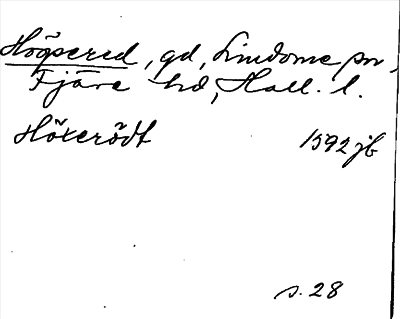 Högsered, gd, Lindome sn,
Fjäre hd, Hall. l.
Hökerödt 1592 jb
s. 28